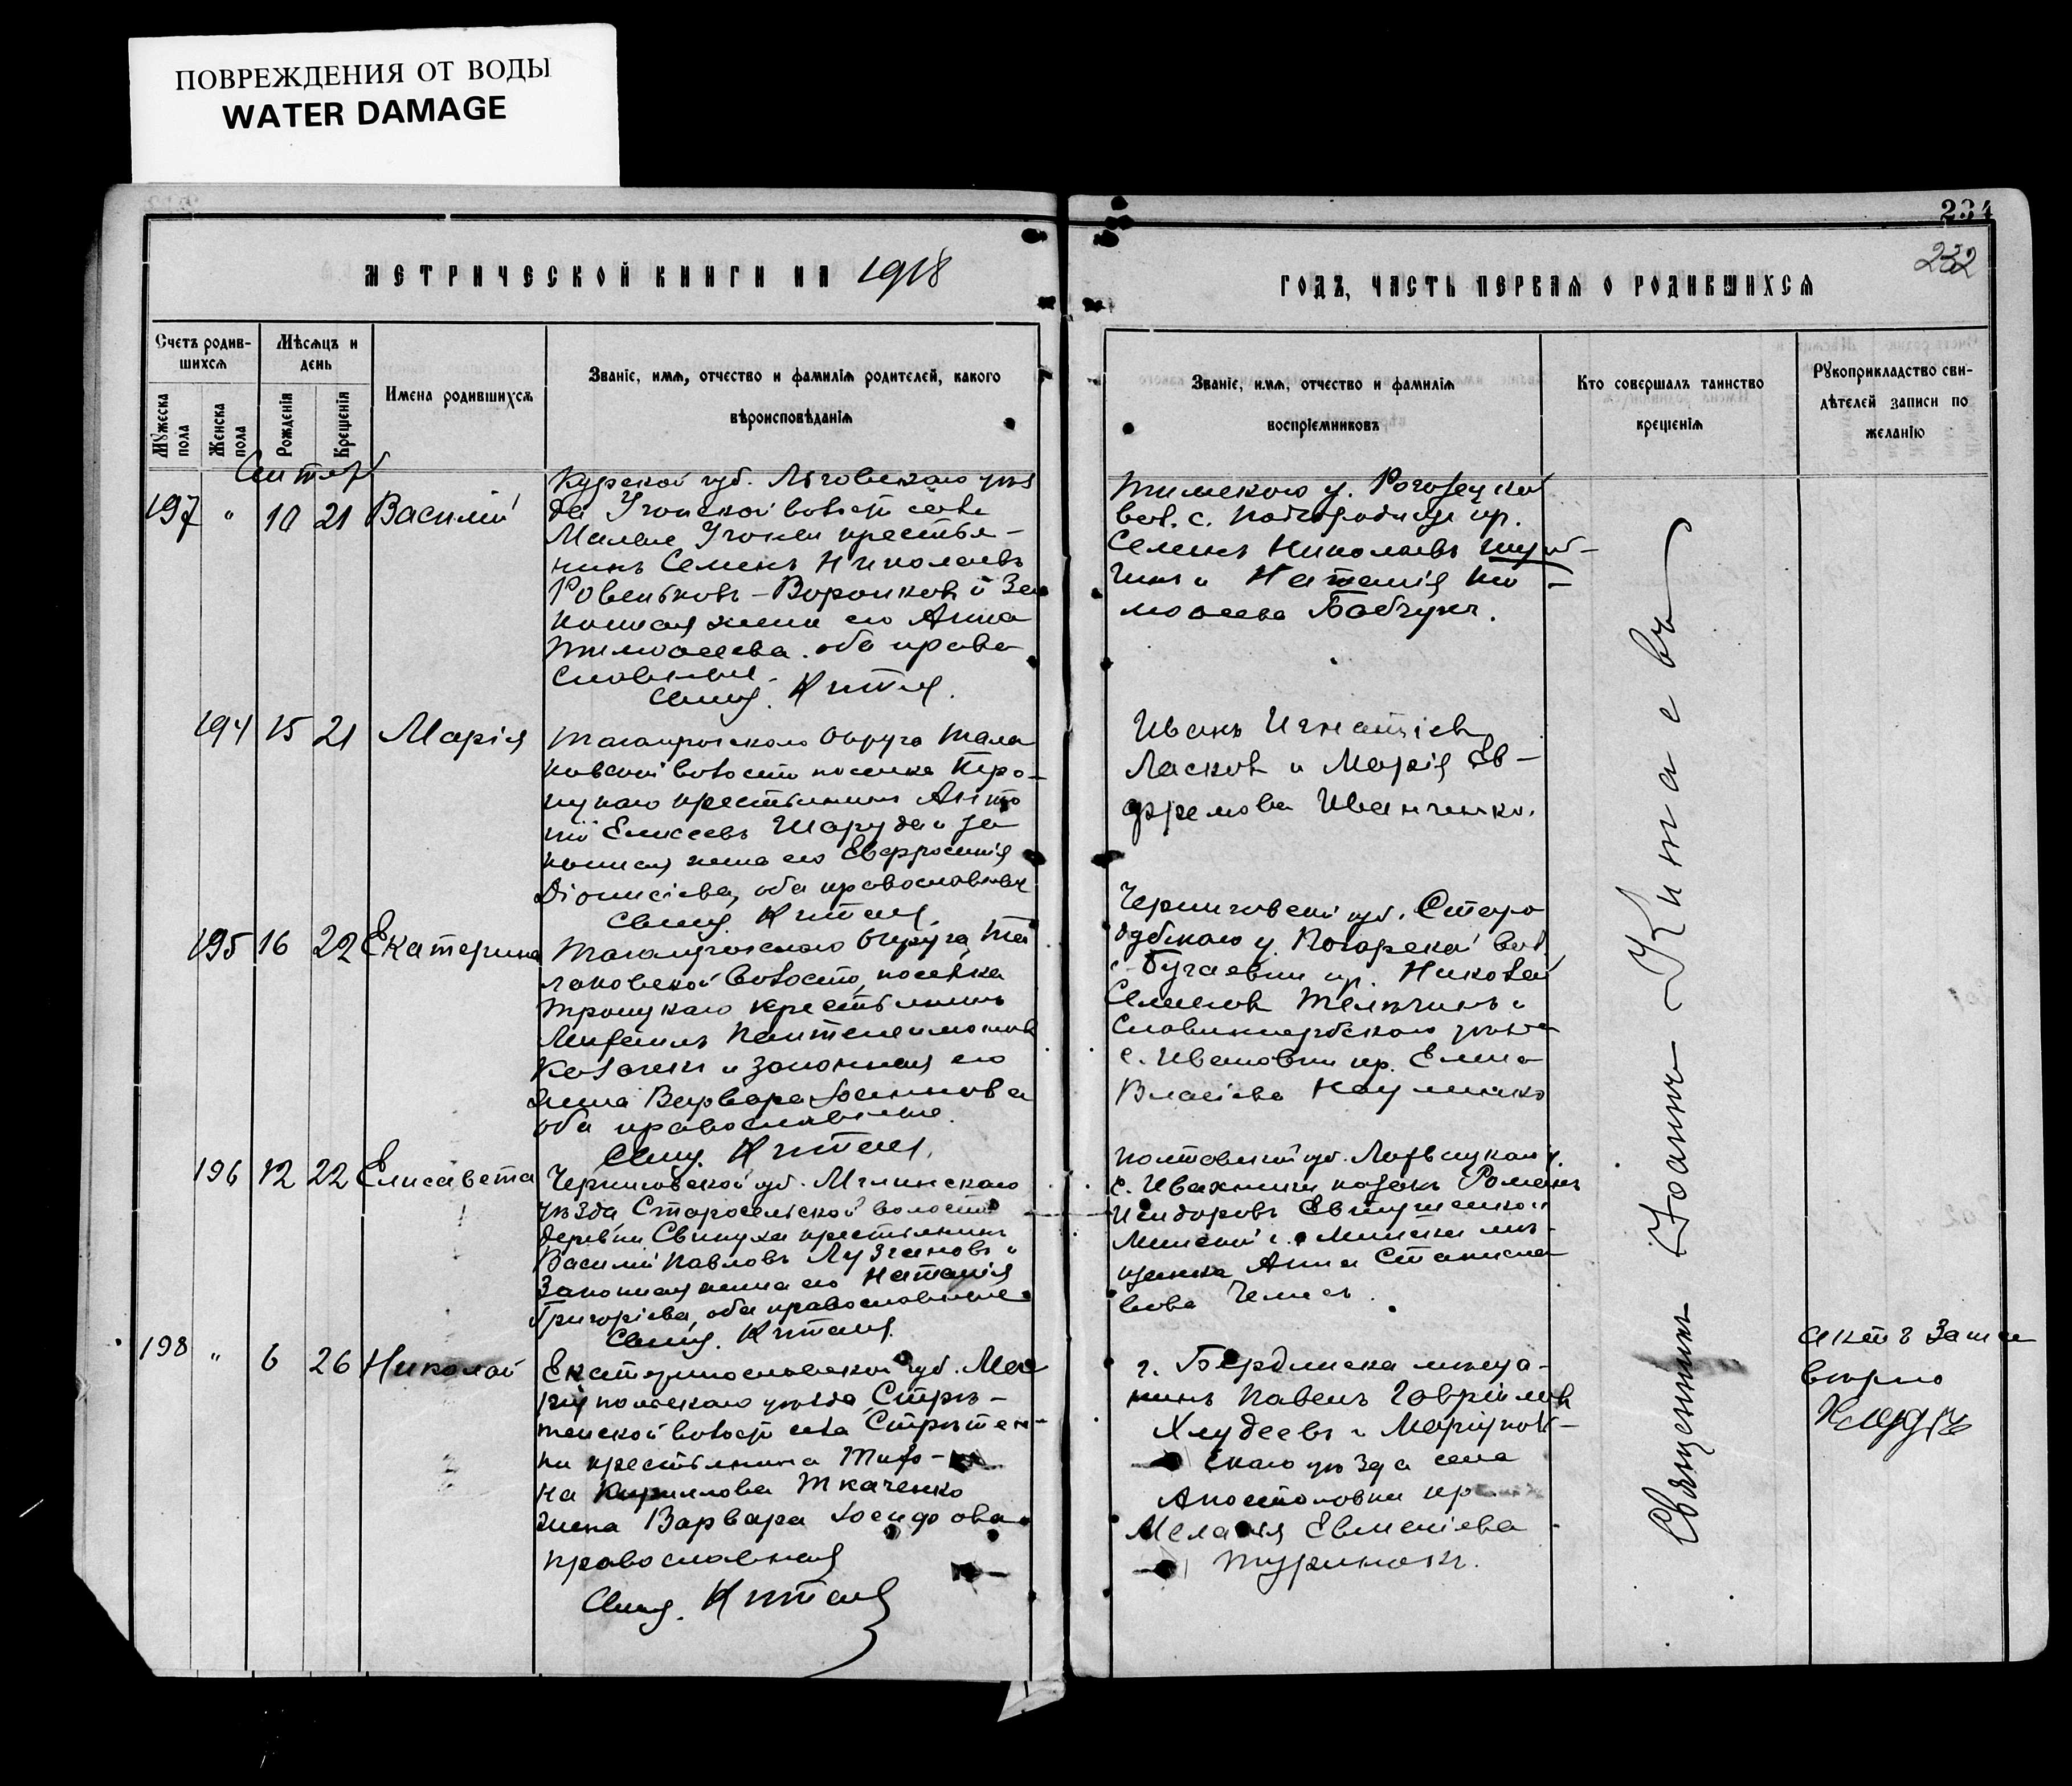 ПОВРЕЖДЕНИЯ ОТ ВОДЫ
WATER DAMAGE
234
232
МЕТРИЧЕСКОЙ КНИГИ НА 1918
ГОДЪ, ЧАСТЬ ПЕРВАЯ О РОДИВШИХСЯ
Счетъ родив-
шихся
Мѣсяцъ и
день
Имена родившихся
Званіе, имя, отчество и фамилія родителей, какого
вѣроисповѣданія
Мужеска
пола
Женска
пола
Рожденія
Крещенія
Званіе, имя, отчество и фамилія
воспріемниковъ
Кто совершалъ таинство
крещенія
Рукоприкладство сви-
дѣтелей записи по
желанію
197 " 10 21 Василій
Курской губ. Льговскаго уѣз
да Угонской волости села
Малые Угоны крестья-
нинъ Семенъ Николаевъ
Ровеньковъ-Воронковъ и За
конная жена его Анна
Тимоѳеева. оба право
славные.
Свящ. Китаев.
Тимскаго у.
вол. с. кр.
Семенъ Николаевъ
и Наталія Ти-
моѳеева Бабчукъ.
194 15 21 Марія
Таганрогскаго Округа Тала
ковской волости поселка Тро-
ицкаго крестьянинъ Анто
ній Елисеевъ Шаруда и за
конная жена его Евфросинія
Діонисіева, оба православные
Свящ. Китаев.
Иванъ Игнатіев
Ласков и Марія Ев-
фремова Иванченко.
195 16 22 Екатерина
Таганрогскаго Округа, Та
лаковской волости, поселка
Троицкаго крестьянинъ
Михаилъ Пантелеимонов
и законная его
жена Варвара Іосифова
оба православные.
Свящ. Китаев.
Черниговской губ. Старо
дубскаго у. Погарской вол.
с. Бугаевки кр. Николай
Семенов и
Славяносербскаго уѣзда
с. Ивановки кр. Елена
Власіева Науменко
196 12 22 Елисавета
Черниговской губ. Мглинскаго
уѣзда Старосельской волости
деревни Свинуха крестьянинъ
Василій Павловъ Лузгановъ и
Законная жена его Наталія
Григоріева, оба православные
Свящ. Китаев.
Полтавской губ. Лохвицкаго у.
с. Ивахники козакъ Романъ
Исидоровъ Евтушенко и
Минской г. Минска мѣ-
щанка Анна Станисла
вова
198 " 6 26 Николай
Екатеринославской губ. Ма
ріупольскаго уѣзда, Стрѣ-
тенской волости села Стрѣтен-
ки крестьянина Тихо-
на Кириллова Ткаченко
жена Варвара Іосифова
православная
Свящ. Китаев
г. Бердянска мѣща-
нинъ Павелъ Гавріилов
Хлудеевъ и Маріуполь-
скаго уѣзда села
Апостоловки кр.
Меланія Евменіева
Священникъ Іоаннъ Китаевъ
вѣрно